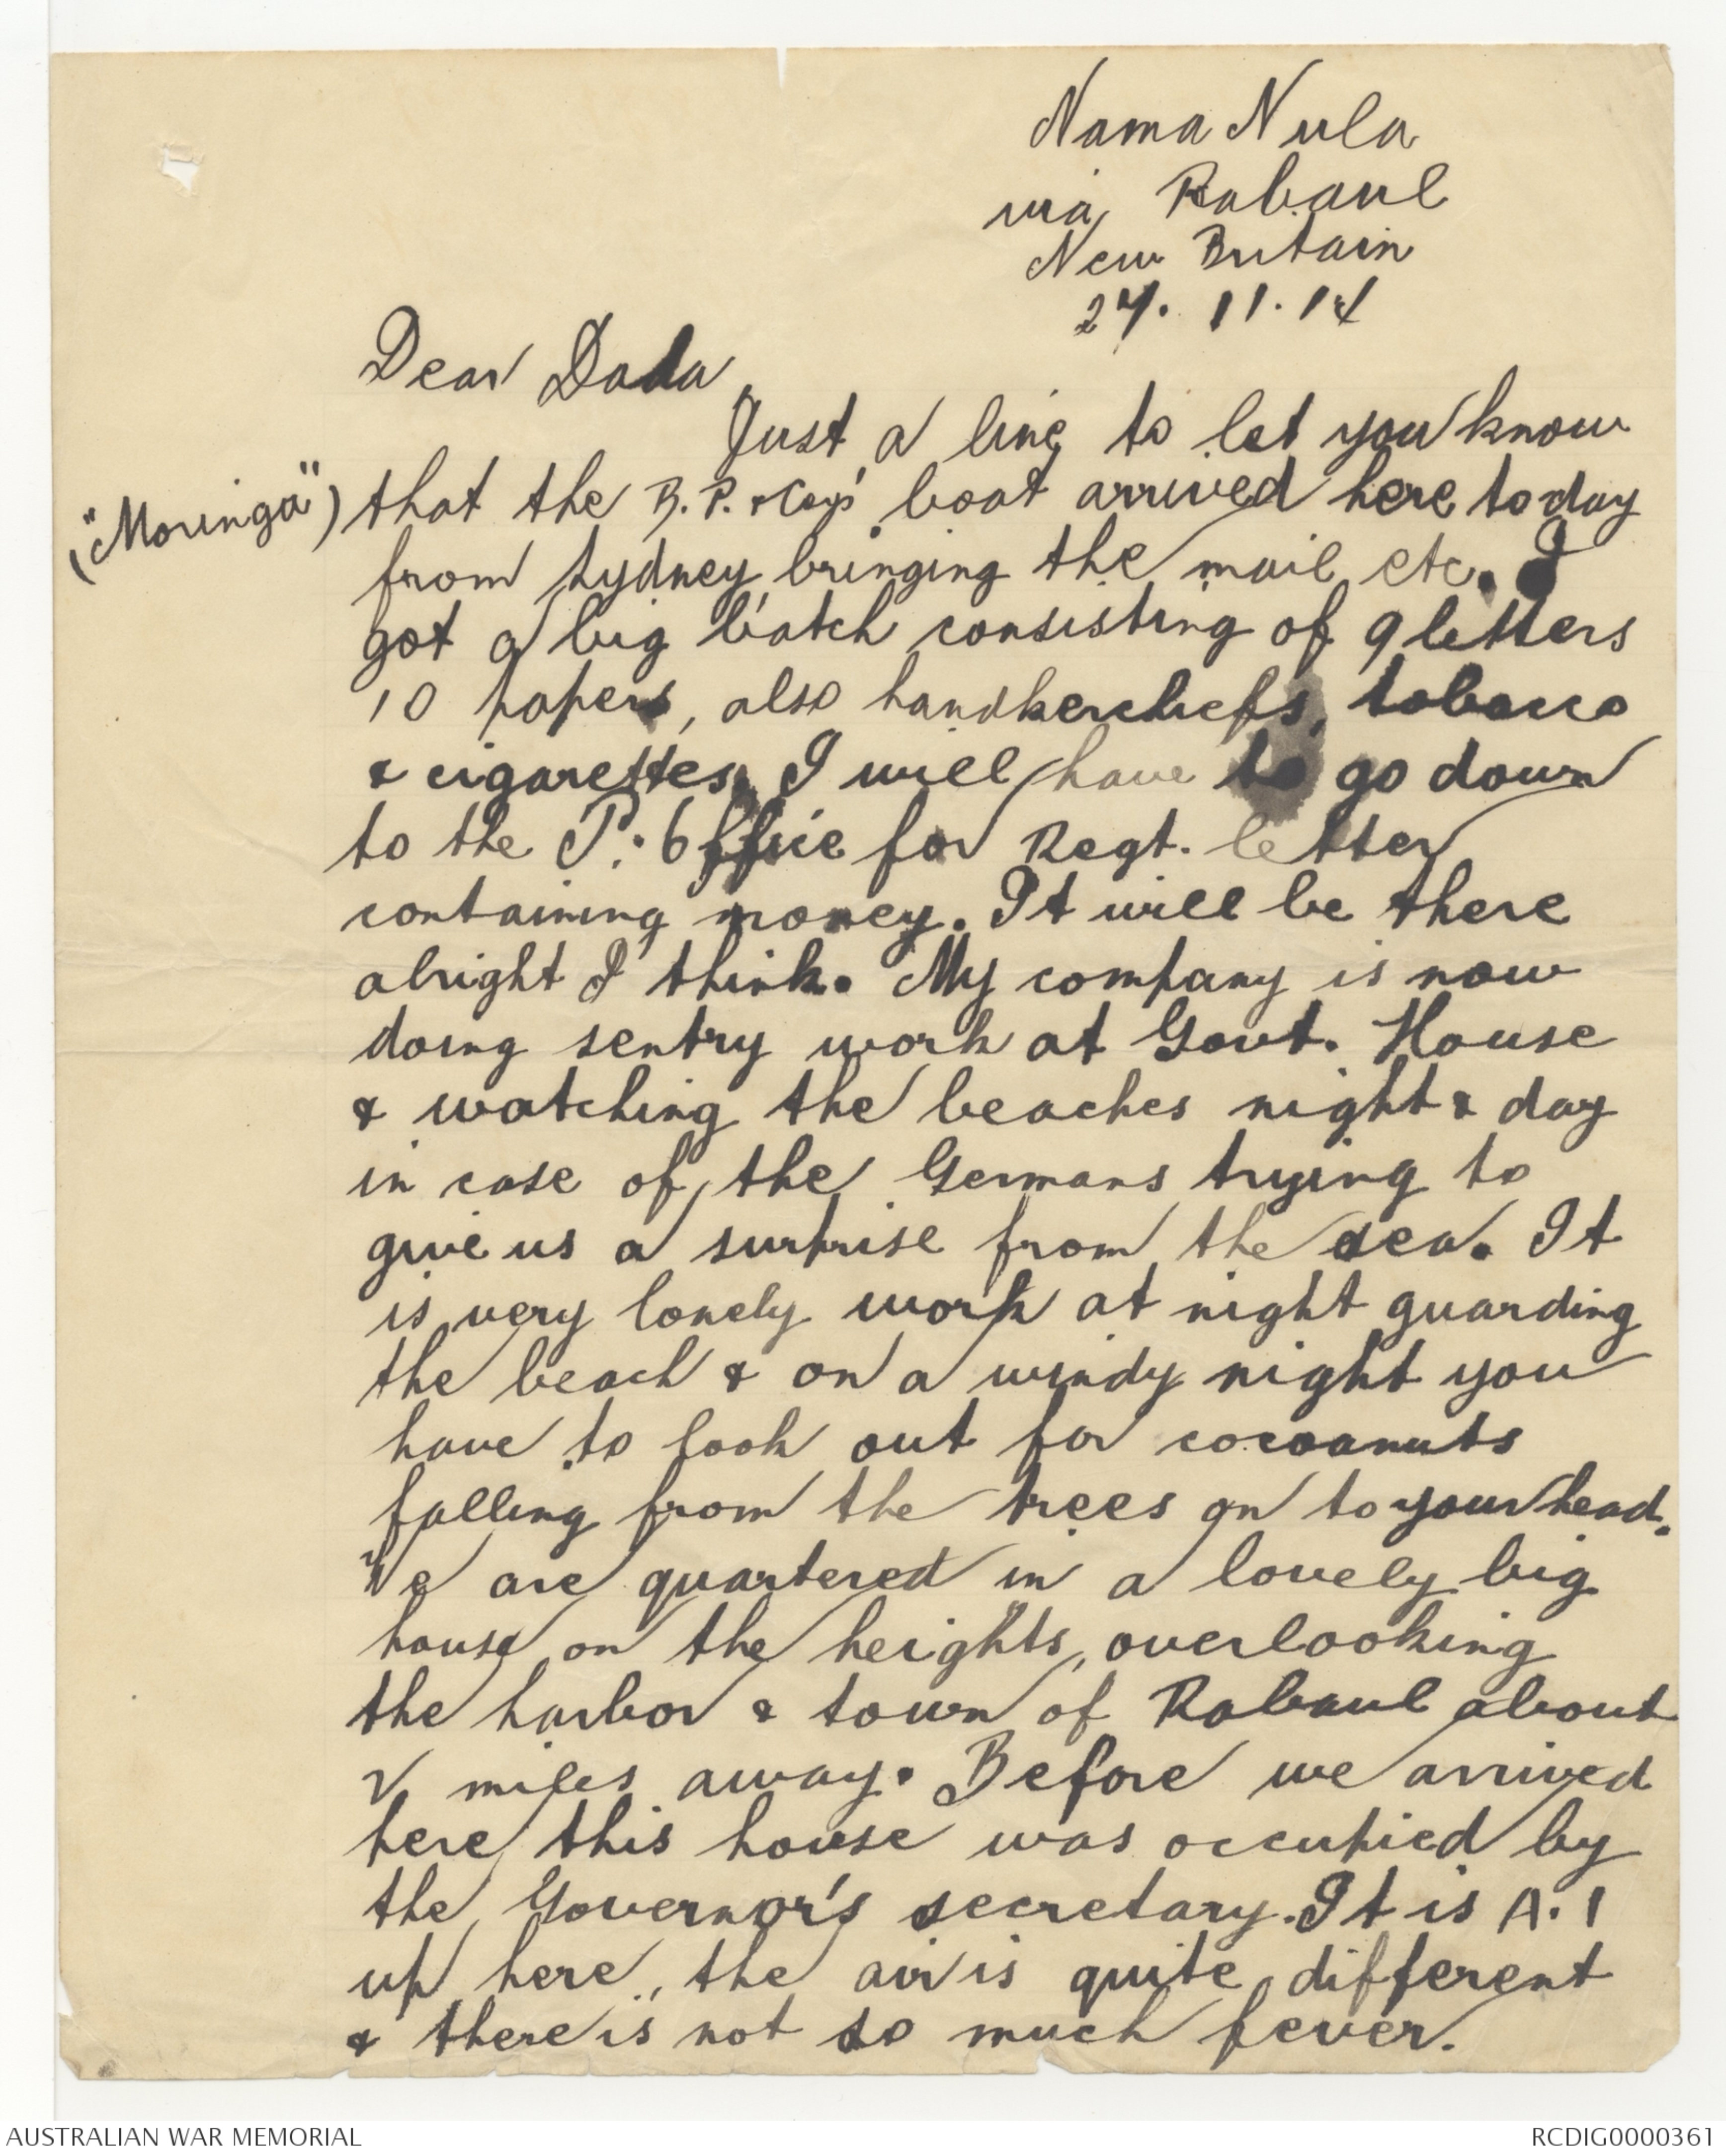 Nama Nula
via Rabaul
New Britain
27. 11. 14
Dear Dada
Just a line to let you know
("Moringa") that the B.P. & Coys' boat arrived here today
from Sydney bringing the mail etc. I
got a big batch consisting of 9 letters
10 papers, also handkerchiefs, tobacco
& cigarettes. I will have to go down
to the P. Office for Regt. letter
containing money. It will be there
alright I think. My company is now
doing sentry work at Govt. House
& watching the beaches night & day
in case of the Germans trying to
give us a surprise from the sea. It
is very lonely work at night guarding
the beach & on a windy night you
have to look out for cocoanuts
falling from the trees on to your head.
We are quartered in a lovely big
house on the heights, overlooking
the harbor & town of Rabaul about
2 miles away. Before we arrived
here this house was occupied by
the Governor's secretary. It is A.1
up here, the air is quite different
& there is not so much fever.
AUSTRALIAN WAR MEMORIAL
RCDIG0000361